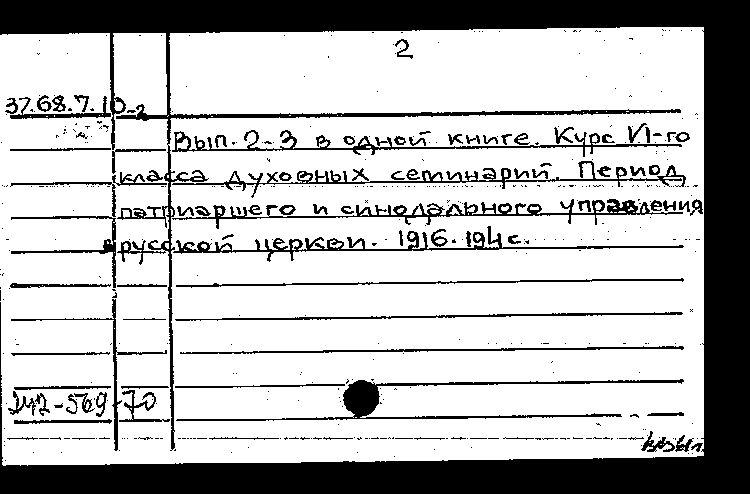 2
37.68.7.10-2
Вып. 2-3 в одной книге. Курс VI-го
класса духовных семинарий. Период
патриаршего и синодального управления
в русской церкви. 1916. 194 с.
242-569-70